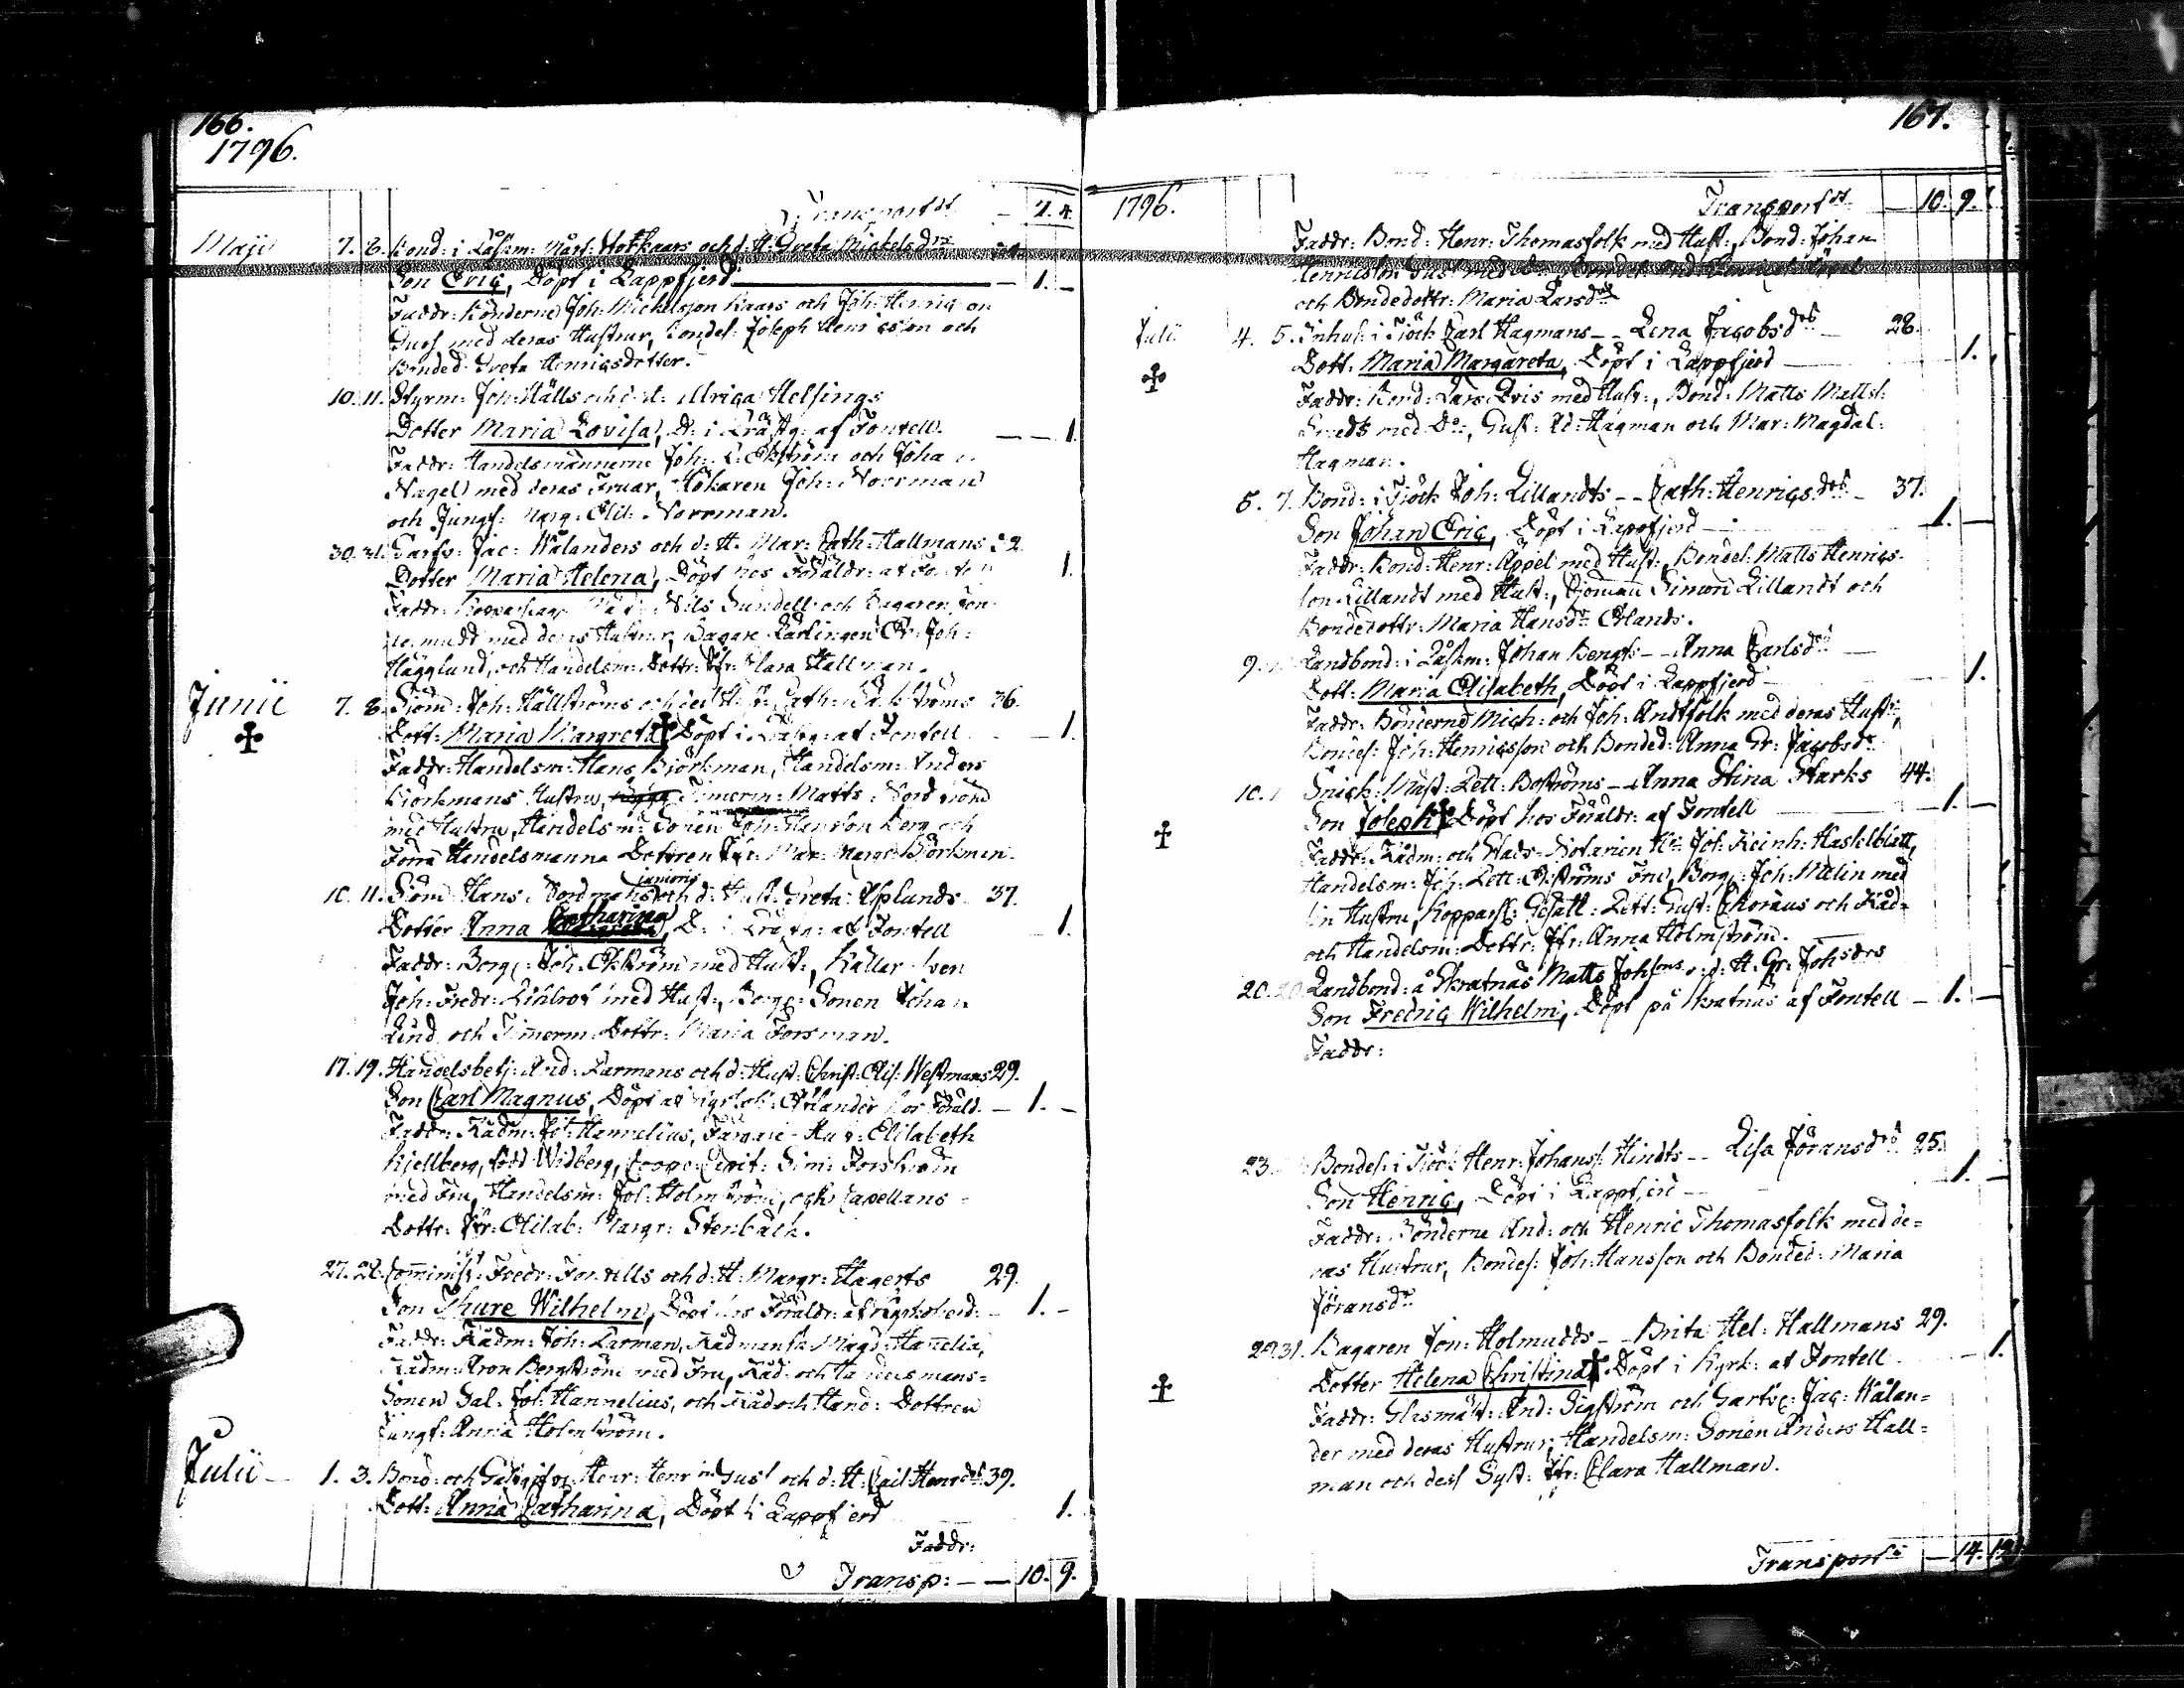 166.
1796.
Transport dt — 7. 4.
Maji 7. 8. Bond: i Låſkm: Mårt: Hotkaars och d. H. Greta Mickelsdrs
Son Eriç, Döpt i Lappfjerd — 1. —
Faddr: Bönderne Joh: Mickelsſon Kaars och Joh: Henriçson
Guſs med deras Huſtrur, Bondeſ: Joſeph Henriçsſon och
Bonded. Greta Henriçsdotter.
10. 11. Styrm: Joh: Hälls och d. H: Ulriça Helſings
Dotter Maria Loviſa, D: i Kräſtg: af Fontell. — — 1.
Faddr: Handelsmännerne Joh: L: Ekſtröm och Joha
Nagel med deras Fruar, Hökaren Joh: Norrman
och Jungf: Marg: Eliſ: Norrman.
30. 31. Garfv: Jac: Wålanders och d: H. Mar: Cath: Hallmans
Dotter Maria Helena, Döpt hos Föräldr: af Fontell 1.
Faddr: Nils Sundell och Bagaren Jon
med deras Huſtrur, Bagare Lärlingen Er: Joh:
Hägglund, och Handelsm: Dottr: Jfr: Clara Hallman.
Junii 7. 8. Siöm: Joh: Hällſtröms och deſ H: Cath: 36.
Dott: Maria Margreta Döpt i af Fontell — 1.
Faddr: Handelsm: Hans Björkman, Handelsm: Anders
Björkmans Huſtru, Timerm: Matts Nordſtröm
med Huſtru, Handelsm: Sonen Joh: Hanſson Berg och
Förra Handelsmanna Dottren Jfr: Mar: Margr: Björkman.
juniors
10. 11. Siöm: Hans Nordmans och d: Huſt: Greta Aſplunds 37.
Catharina
Dotter Anna D: i af Fontell — 1.
Faddr: Borg: Joh: Ekſtröm med Huſt:, Källar
Joh: Fredr: Lihlroſ med Huſt:, Borg: Sonen Johan
Lind och Timerm: Dottr: Maria Forsman.
17. 19. Handelsbetj: And: Larmans och d: Huſt: Chriſt: Eliſ: Weſtmans 29.
Son Carl Magnus, Döpt af Kyrkoh: hos Föräld. — 1. —
Faddr: Rådm: Joſ: Hannelius, Färgare Hu Elisabeth
Kjellberg, född Widberg, Sim: Forsſtröm
med Fru, Handelsm: Joſ: Holmſtröm, och Capellans-
Dottr: Jfr: Elisab: Margr: Stenbäck.
27. 28. Comminiſt: Fredr: Fontells och d: H: Margr: Hagerts 29.
Son Thure Wilhelm, Döpt hos Föräldr: af Kyrkoherd: — 1. —
Faddr: Rådm: Joh: Larman, Rådmansk: Magd: Hanelia,
Rådm: Aron Bergſtröm med Fru, Råd- och Handelsmans-
Sonen Sal: Joſ: Hannelius, och Råd och Hand: Dottren
Jungf: Anna Holmſtröm.
Julii — 1. 3. Bond: och Henr: Henr:sn Guſs och d: H: Caiſ: Henrdr 39.
Dott: Anna Catharina, Döpt i Lappfierd 1.
Faddr:
Transp: — — 10. 9.
167.
1796. Transport dt — 10. 9.
Faddr: Bond: Henr: Thomasfolk med Huſt:, Bond: Johan
Henricſon Guſs med Do:,
och Bondedottr: Maria Larsdr
Julii 4. 5. Inhyſ: i Tjöck Carl Hagmans — Lena Jacobsdrs — 28.
Dott: Maria Margareta, Döpt i Lappfjerd — 1.
Faddr: Bond: Lars Evis med Huſt:, Bond: Matts Mattsſ:
med Do:, Guſt: Ad: Hagman och Mar: Magdal:
Hagman.
5. 7. Bond: i Tjöck Joh: Lillandts — Cath: Henriçsdrs — 37.
Son Johan Eriç, Döpt i Lappfjerd — 1. —
Faddr: Bond: Henr: Appel med Huſt:, Bondeſ: Matts Henriçs-
ſon Lillandt med Huſt:, Sjöman Simon Lillandt och
Bondedottr: Maria Hansdr Erlands.
9. Landbond: i Låſkm: Johan Bengts — Anna Carlsdrs —
Dott: Maria Elisabeth, Döpt i Lappfjerd — 1.
Faddr: Bönderne Mich: och Joh: Andtfolk med deras Huſtr:,
Bondeſ: Joh: Henricsſon och Bonded: Anna Gr: Jacobsdr
10. Snick: Mäſt: Zett: Boſtröms — Anna Stina Starks 44.
Son Joſeph Döpt hos Föräldr: af Fontell — 1. —
Faddr: Rådm: och Stads-Notarien Hr: Joſ: Reinh: Haſselblatt,
Handelsm: Joh: Zett: Ekſtröms Fru, Borg: Joh: Melin med
ſin Huſtru, Kopparſl: Geſäll: Zett: Guſt: Choræus och Råd-
och Handelsm: Dottr: Jfr: Anna Holmſtröm.
20. 20. Landbond: å Skatnäs Matts Johſons o: d: H: Gr: Johsdrs
Son Fredriç Wilhelm, Döpt på Skatnäs af Fontell — 1. —
Faddr:
23. Bondeſ: i Tjöck Henr: Johansſ: Hindts — Liſa Jöransdrs 25.
Son Henriç, Döpt i Lappfjerd — 1. —
Faddr: Bönderne And: och Henric Thomasfolk med de-
ras Huſtrur, Bondeſ: Joh: Hansſon och Bonded: Maria
Jöransdr
29. 31. Bagaren Jon: Holmudds — Brita Hel: Hallmans 29.
Dotter Helena Chriſtina Döpt i Kyrk: af Fontell — 1.
Faddr: Glasmäſt: And: Sigſtröm och Garfv: Jac: Wålan-
der med deras Huſtrur, Handelsm: Sonen Anders Hall-
man och deſs Syſt: Jfr: Clara Hallman.
Transport — 14. 12.